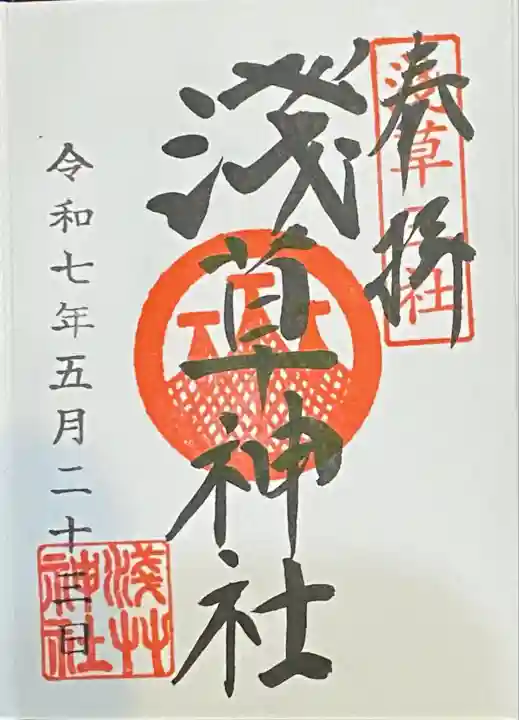 奉拝
浅草一之社
淺草神社
令和七年五月二十三日
淺草
神社